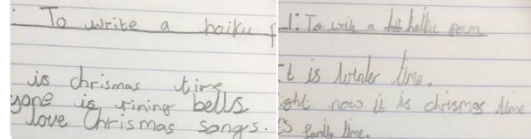 : To write a haiku f
is chrismas time
yone is rining bells
love Chrismas songs.
1: To write a haiku poem
t is Winter time.
ight now it is chrismas time
s family time.